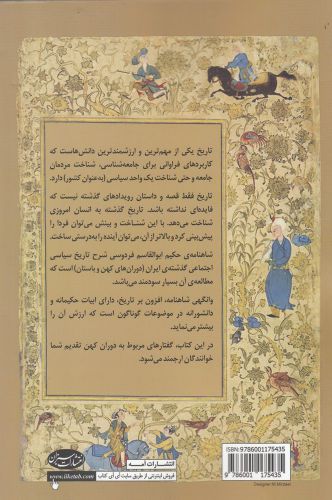 تاریخ یکی از مهم‌ترین و ارزشمندترین دانش‌هاست که
کاربردهای فراوانی برای جامعه‌شناسی، شناخت مردمان
جامعه و حتی شناخت یک واحد سیاسی (به‌عنوان کشور) دارد.
تاریخ فقط قصه و داستان رویدادهای گذشته نیست که
فایده‌ای نداشته باشد. تاریخ گذشته به انسان امروزی
شناخت می‌دهد. با این شناخت و بینش می‌توان فردا را
پیش‌بینی کرد و بالاتر از آن، می‌توان آینده را به‌درستی ساخت.
شاهنامه‌ی حکیم ابوالقاسم فردوسی شرح تاریخ سیاسی
اجتماعی گذشته‌ی ایران (دوران‌های کهن و باستان) است که
مطالعه‌ی آن بسیار سودمند می‌باشد.
وانگهی شاهنامه، افزون بر تاریخ، دارای ابیات حکیمانه و
دانشورانه در موضوعات گوناگون است که ارزش آن را
بیشتر می‌نماید.
در این کتاب، گفتارهای مربوط به دوران کهن تقدیم شما
خوانندگان ارجمند می‌شود.
انتشارات آمه
فروش اینترنتی از طریق سایت آی آی کتاب
www.iiketab.com
ISBN: 9786001175435
9 786001 175435
Designer M.Mirzaei